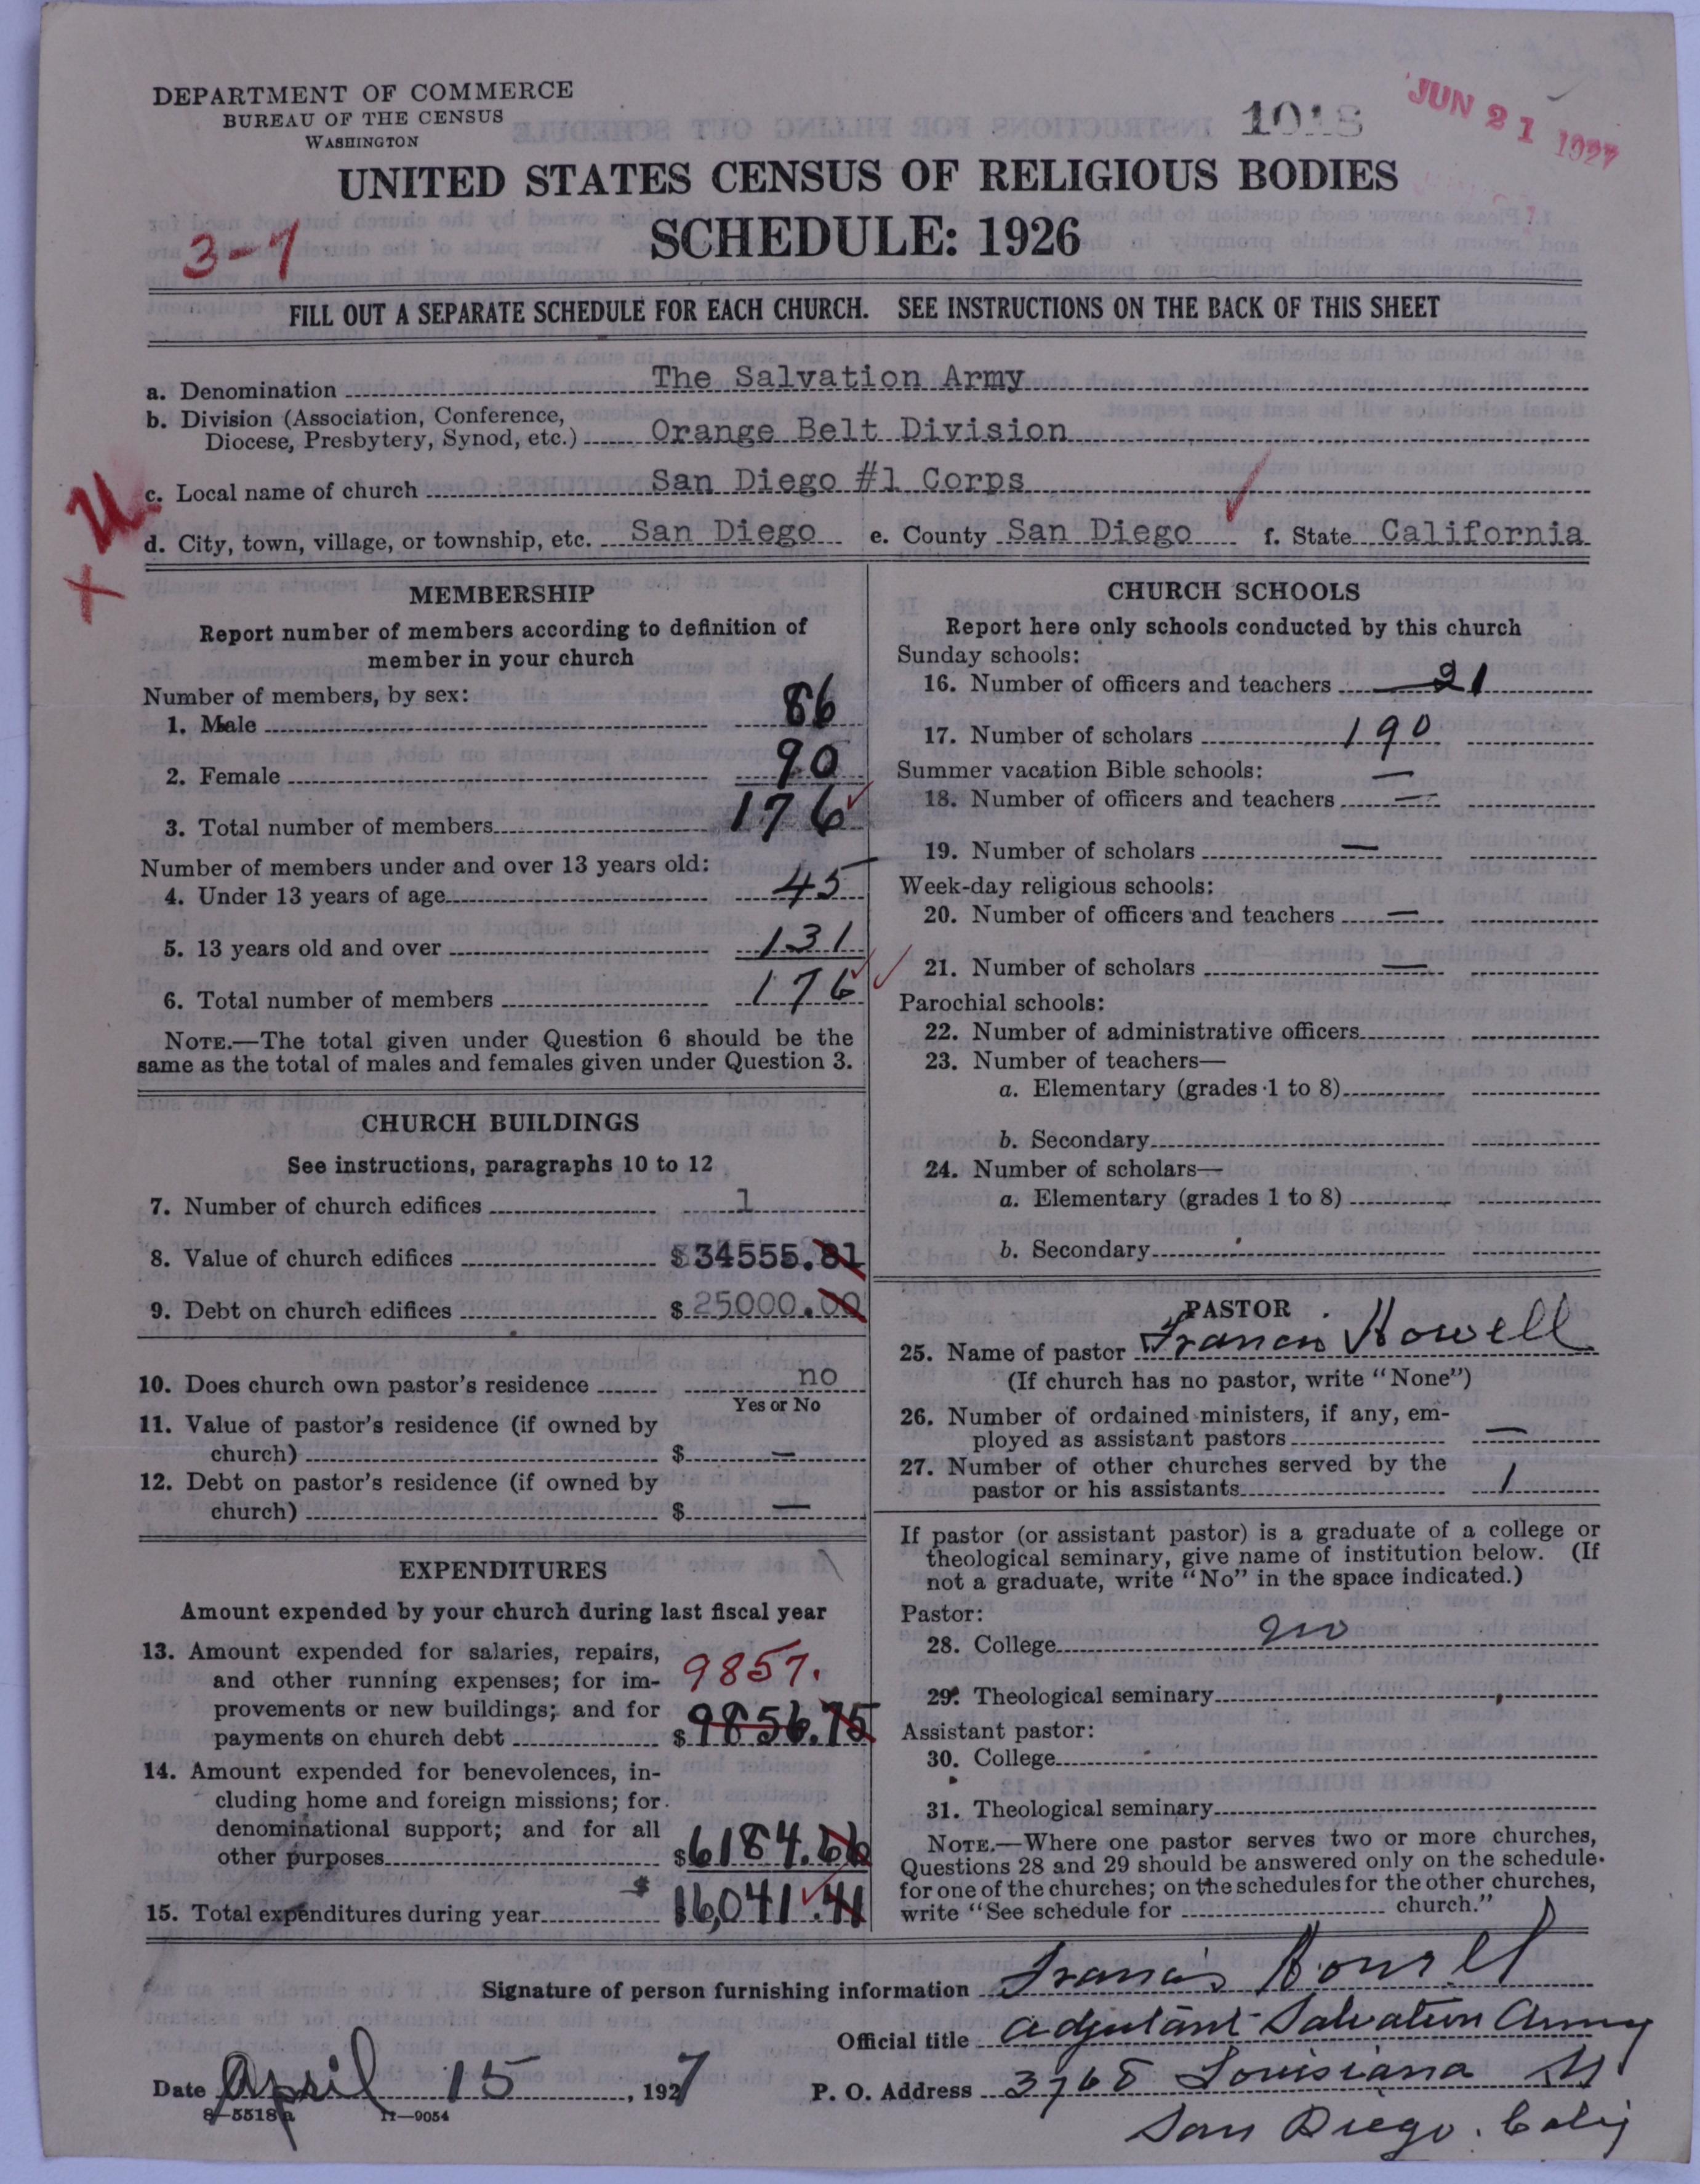 DEPARTMENT OF COMMERCE
BUREAU OF THE CENSUS
WASHINGTON
1018
JUN 21 1927
UNITED STATES CENSUS OF RELIGIOUS BODIES
SCHEDULE: 1926
3-7
FILL OUT A SEPARATE SCHEDULE FOR EACH CHURCH. SEE INSTRUCTIONS ON THE BACK OF THIS SHEET
a. Denomination The Salvation Army
b. Division (Association, Conference,
Diocese, Presbytery, Synod, etc.) Orange Belt Division
c. Local name of church San Diego #1 Corps
d. City, town, village, or township, etc. San Diego e. County San Diego f. State California
MEMBERSHIP
Report number of members according to definition of
member in your church
Number of members, by sex:
1. Male 86
2. Female 90
3. Total number of members 176
Number of members under and over 13 years old:
4. Under 13 years of age 45
5. 13 years old and over 131
6. Total number of members 176
NOTE.—The total given under Question 6 should be the
same as the total of males and females given under Question 3.
CHURCH BUILDINGS
See instructions, paragraphs 10 to 12
7. Number of church edifices 1
8. Value of church edifices $34555.81
9. Debt on church edifices $25000.00
10. Does church own pastor's residence no
Yes or No
11. Value of pastor's residence (if owned by
church) $ —
12. Debt on pastor's residence (if owned by
church) $ —
EXPENDITURES
Amount expended by your church during last fiscal year
13. Amount expended for salaries, repairs,
and other running expenses; for im- 9857.
provements or new buildings; and for
payments on church debt $9856.75
14. Amount expended for benevolences, in-
cluding home and foreign missions; for
denominational support; and for all
other purposes $6184.66
15. Total expenditures during year $16,041.41
CHURCH SCHOOLS
Report here only schools conducted by this church
Sunday schools:
16. Number of officers and teachers 21
17. Number of scholars 190
Summer vacation Bible schools: —
18. Number of officers and teachers —
19. Number of scholars —
Week-day religious schools:
20. Number of officers and teachers —
21. Number of scholars —
Parochial schools:
22. Number of administrative officers
23. Number of teachers—
a. Elementary (grades 1 to 8)
b. Secondary
24. Number of scholars—
a. Elementary (grades 1 to 8)
b. Secondary
PASTOR
25. Name of pastor Francis Howell
(If church has no pastor, write "None")
26. Number of ordained ministers, if any, em-
ployed as assistant pastors —
27. Number of other churches served by the
pastor or his assistants 1
If pastor (or assistant pastor) is a graduate of a college or
theological seminary, give name of institution below. (If
not a graduate, write "No" in the space indicated.)
Pastor:
28. College no
29. Theological seminary
Assistant pastor:
30. College
31. Theological seminary
NOTE.—Where one pastor serves two or more churches,
Questions 28 and 29 should be answered only on the schedule
for one of the churches; on the schedules for the other churches,
write "See schedule for church."
Signature of person furnishing information Francis Howell
Official title Adjutant Salvation Army
Date April 15, 1927 P. O. Address 3768 Louisiana St
San Diego. Calif
8—5518a 11—9054